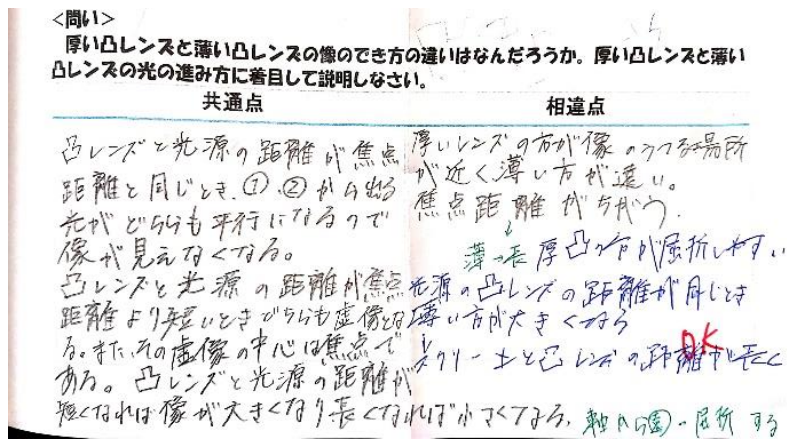 <問い>
厚い凸レンズと薄い凸レンズの像のでき方の違いはなんだろうか。厚い凸レンズと薄い
凸レンズの光の進み方に着目して説明しなさい。
共通点
凸レンズと光源の距離が焦点
距離と同じとき、①、②から出る
光がどちらも平行になるので
像が見えなくなる。
凸レンズと光源の距離が焦点
距離より短いときどちらも虚像とな
る。また、その虚像の中心は焦点で
ある。凸レンズと光源の距離が
短くなれば像が大きくなり長くなれば小さくなる。
相違点
厚いレンズの方が像のうつる場所
が近く薄い方が遠い。
焦点距離がちがう。
薄→長 厚凸の方が屈折しやすい
光源の凸レンズの距離が同じとき
薄い方が大きくなる
OK
スクリーンと凸レンズの距離が長く
軸から 屈折する